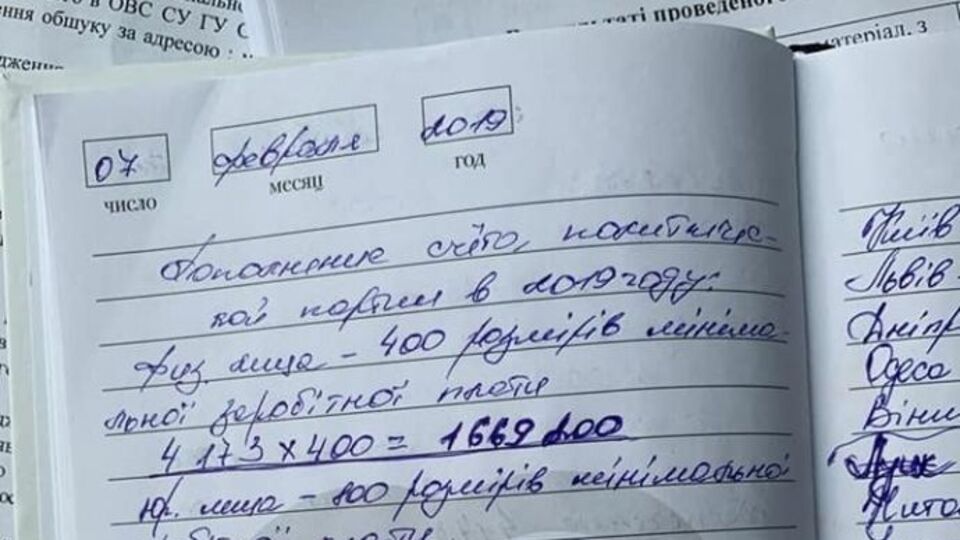 в ОВС СУ ГУ
ння обшуку за адресою :
дження
таті проведеного
матеріал. з
07 февраля 2019
число месяц год
Пополнение счёта, политичес-
кой партии в 2019 году:
физ. лица – 400 розмірів мініма-
льної заробітної плати
4 173 х 400 = 1669 200
Юр. лица – 800 розмірів мінімальної
Київ
Львів
Дніпр
Одеса
Вінн
Луцк
Жито